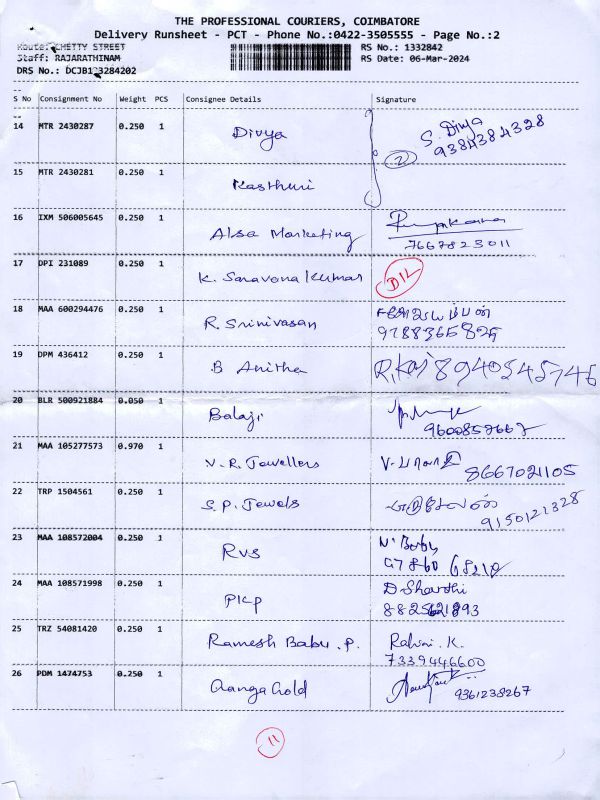 THE PROFESSIONAL COURIERS, COIMBATORE
Delivery Runsheet - PCT - Phone No.:0422-3505555 - Page No.:2
Route: CHETTY STREET
RS No.: 1332842
Staff: RAJARATHINAM
RS Date: 06-Mar-2024
DRS No.: DCJB1 3284202
S No Consignment No Weight PCS Consignee Details Signature
14 MTR 2430287 0.250 1 Divya S. Divya
9384384328
2
15 MTR 2430281 0.250 1 Kasthuri
16 IXM 506005645 0.250 1 Alsa Marketing
7667823011
17 DPI 231089 0.250 1 K. Saravana Kumar D/L
18 MAA 600294476 0.250 1 R. Srinivasan
9788365825
19 DPM 436412 0.250 1 B Anitha R.Raj 8940545746
20 BLR 500921884 0.050 1 Balaji
9600857667
21 MAA 105277573 0.970 1 V.R. Jewellers 8667021105
22 TRP 1504561 0.250 1 S.P. Jewels
9150121328
23 MAA 108572004 0.250 1 RVS
24 MAA 108571998 0.250 1 PKP D. Sharthi
25 TRZ 54081420 0.250 1 Ramesh Babu .P. Rahini. K.
7339446600
26 PDM 1474753 0.250 1 Ganga Gold 9361238267
11